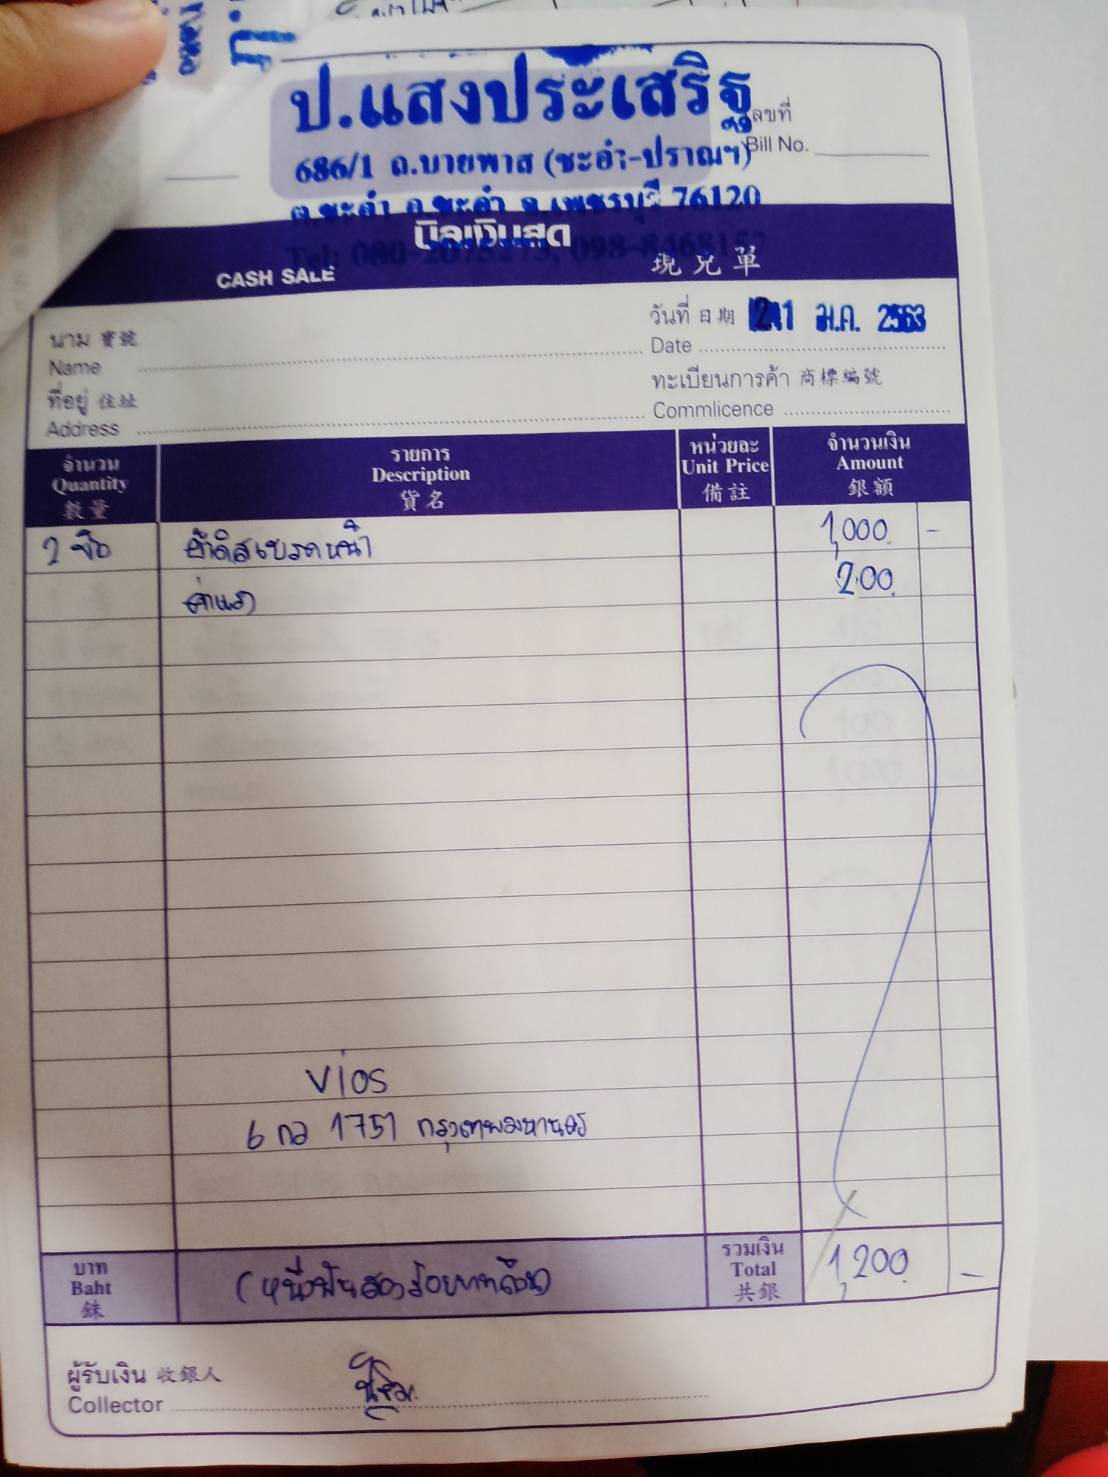 ป.แสงประเสริฐ
เลขที่
Bill No.
686/1 ถ.บายพาส (ชะอำ-ปราณฯ)
ต.ชะอำ อ.ชะอำ จ.เพชรบุรี 76120
บิลเงินสด
CASH SALE
วันที่ 日期 21 ม.ค. 2563
Date
นาม 寶號
Name
ทะเบียนการค้า 商標編號
Commlicence
ที่อยู่ 住址
Address
จำนวน รายการ หน่วยละ จำนวนเงิน
Quantity Description Unit Price Amount
數量 貨名 備註 銀額
ผ้าดิสเบรคหน้า 1,000 -
ค่าแรง 200
vios
6 กอ 1751 กรุงเทพมหานคร
บาท รวมเงิน
Baht (หนึ่งพันสองร้อยบาทถ้วน) Total 1,200 -
銖 共銀
ผู้รับเงิน 收銀人
Collector